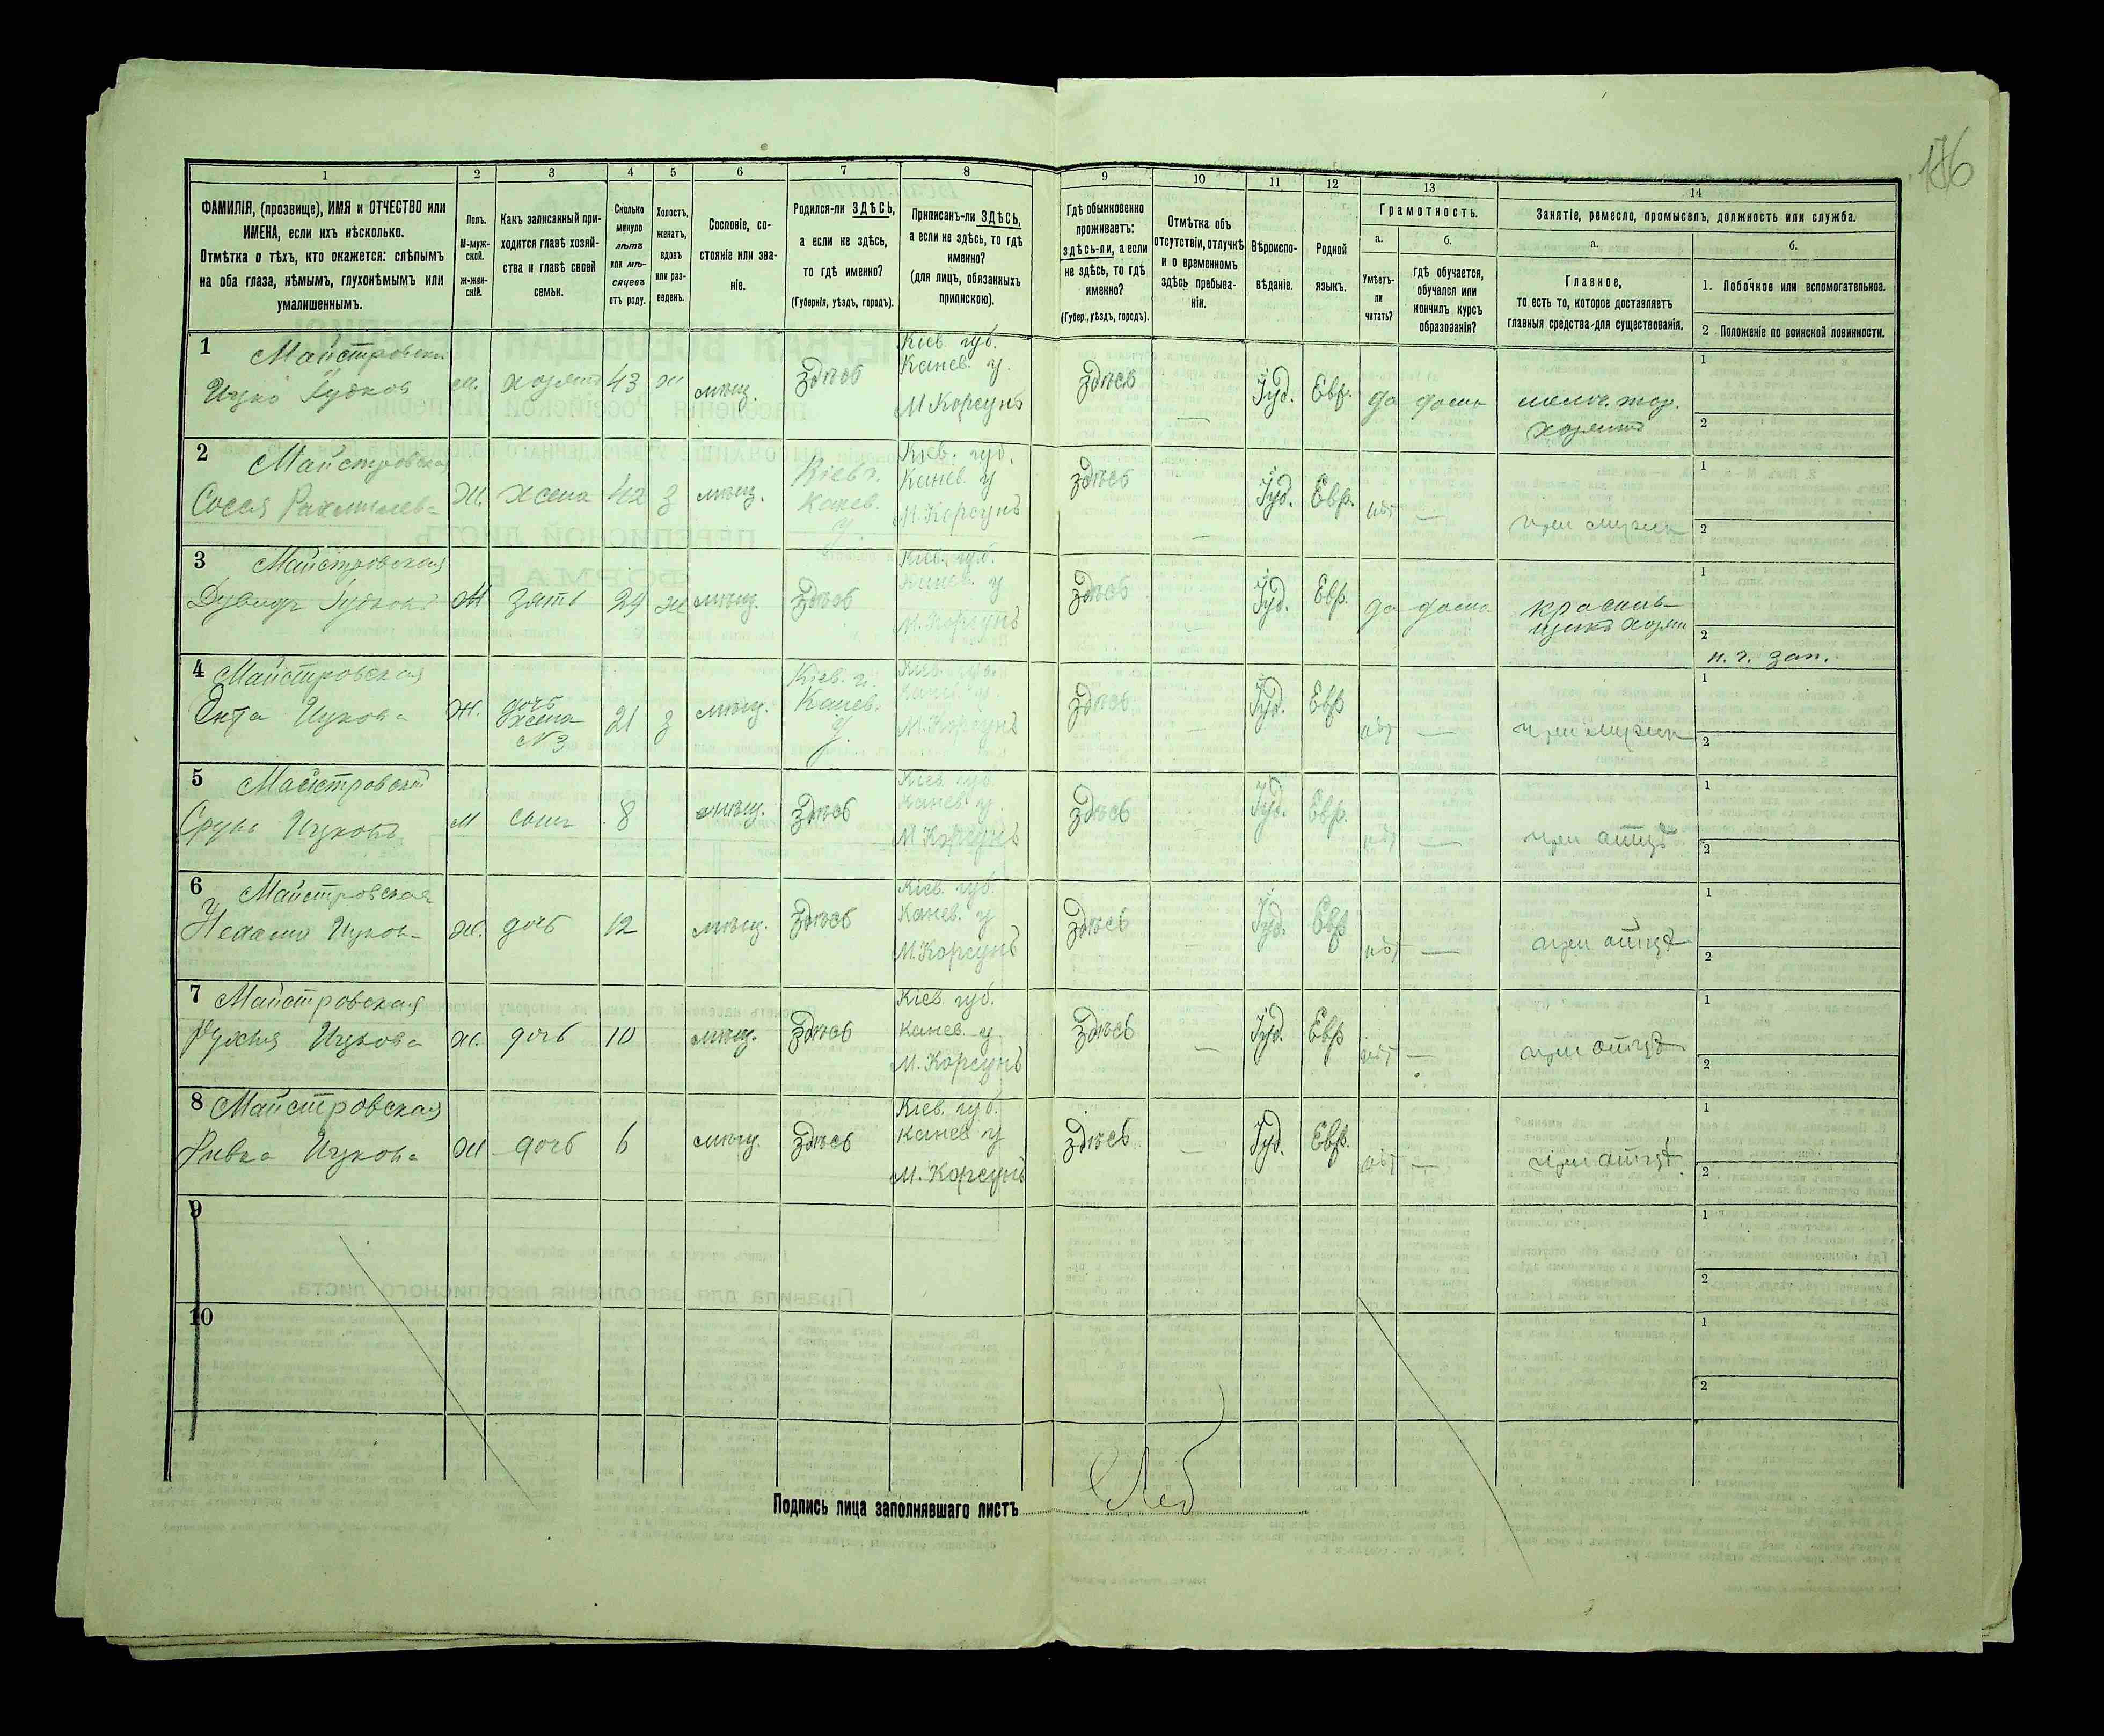 176
1 2 3 4 5 6 7 8 9 10 11 12 13 14
ФАМИЛІЯ, (прозвище), ИМЯ и ОТЧЕСТВО или
ИМЕНА, если ихъ нѣсколько.
Отмѣтка о тѣхъ, кто окажется: слѣпымъ
на оба глаза, нѣмымъ, глухонѣмымъ или
умалишеннымъ.
Полъ.
М-муж-
ской.
Ж-жен-
скій.
Какъ записанный при-
ходится главѣ хозяй-
ства и главѣ своей
семьи.
Сколько
минуло
лѣтъ
или мѣ-
сяцевъ
отъ роду.
Холостъ,
женатъ,
вдовъ
или раз-
веденъ.
Сословіе, со-
стояніе или зва-
ніе.
Родился-ли ЗДѢСЬ,
а если не здѣсь,
то гдѣ именно?
(Губернія, уѣздъ, городъ).
Приписанъ-ли ЗДѢСЬ,
а если не здѣсь, то гдѣ
именно?
(для лицъ, обязанныхъ
припискою).
Гдѣ обыкновенно
проживаетъ:
здѣсь-ли, а если
не здѣсь, то гдѣ
именно?
(Губер., уѣздъ, городъ).
Отмѣтка объ
отсутствіи, отлучкѣ
и о временномъ
здѣсь пребыва-
ніи.
Вѣроиспо-
вѣданіе.
Родной
языкъ.
Грамотность.
а. б.
Умѣетъ-
ли
читать?
Гдѣ обучается,
обучался или
кончилъ курсъ
образованія?
Занятіе, ремесло, промыселъ, должность или служба.
а. б.
Главное,
то есть то, которое доставляетъ
главныя средства для существованія.
1. Побочное или вспомогательное.
2 Положеніе по воинской повинности.
1 Майстровски
Ицко Дудков м. хозяинъ 43 ж мѣщ. здѣсь
Кіев. губ.
Канев. у.
М Корсунъ
здѣсь — Іуд. Евр. да дома мелоч. тор.
хозяинъ
1
2
2 Майстровская
Сося Рахмилева Ж. жена 42 з мѣщ.
Кіев г.
Канев.
у.
Кіев. губ.
Канев. у
М. Корсунъ
здѣсь — Іуд. Евр. нѣт — при мужѣ
1
2
3 Майстровская
М зять 24 ж мѣщ. здѣсь
Кіев. губ.
Канев. у
М. Корсунъ
здѣсь — Іуд. Евр. да дома красиль-
щикъ хозяи
1
2
н. г. зап.
4 Майстровская
Ента Ицкова Ж.
дочь
жена
№ 3
21 з мѣщ.
Кіев. г.
Канев.
у.
Кіев. губ.
Канев. у
М. Корсунъ
здѣсь — Іуд. Евр нѣт — при мужѣ
1
2
5 Майстровский
Сруль Ицковъ М сынъ 8 мѣщ. здѣсь
Кіев. губ.
Канев. у.
М Корсунъ
здѣсь — Іуд. Евр. нѣт — при отцѣ
1
2
6 Майстровская
Нехама Ицков ж. дочь 12 мѣщ. здѣсь
Кіев. губ.
Канев. у
М. Корсунъ
здѣсь — Іуд. Евр нѣт — при отцѣ
1
2
7 Майстровская
Рухля Ицкова ж. дочь 10 мѣщ. здѣсь
Кіев. губ.
Канев. у
М. Корсунъ
здѣсь — Іуд. Евр нѣт — при отцѣ
1
2
8 Майстровская
Ривка Ицкова Ж дочь 6 мѣщ. здѣсь
Кіев. губ.
Канев у
М. Корсунъ
здѣсь — Іуд. Евр. нѣт — при отцѣ.
1
2
9
1
2
10
1
2
Подпись лица заполнявшаго листъ